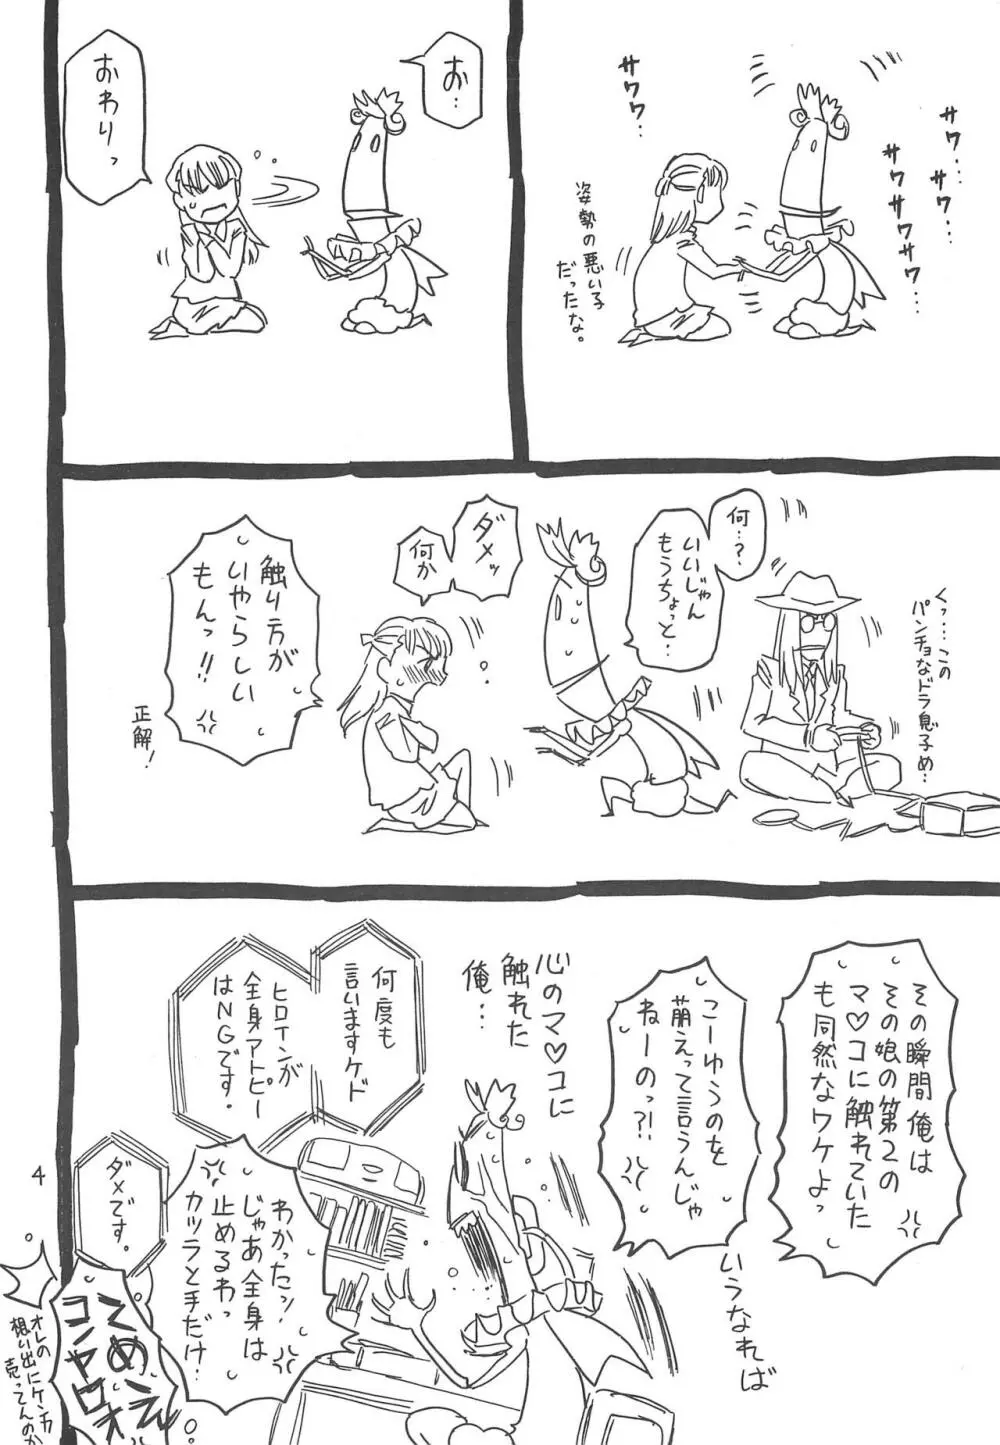 サワサワ…
サワ…サワ…
サワサワサワ…
サワワ…
姿勢の悪い子
だったな。
お…
おわりっ
くっ…この
パンチョなドラ息子め…
何…?
いいじゃん
もうちょっと…
ダメッ
何か
触り方が
いやらしい
もんっ!!
正解!
その瞬間俺は
その娘の第2の
マ♡コに触れていた
も同然なワケよっ
こーゆうのを
萌えって言うんじゃ
ねーのっ?!
いうなれば
心のマ♡コに
触れた
俺…
何度も
言いますケド
ヒロインが
全身アトピー
はNGです。
わかったっ!
じゃあ全身は
止めるわっ
カツラと手だけ
ダメです。
てめえ
コンヤロオ
オレの
想い出にケンカ
売ってんのか
4